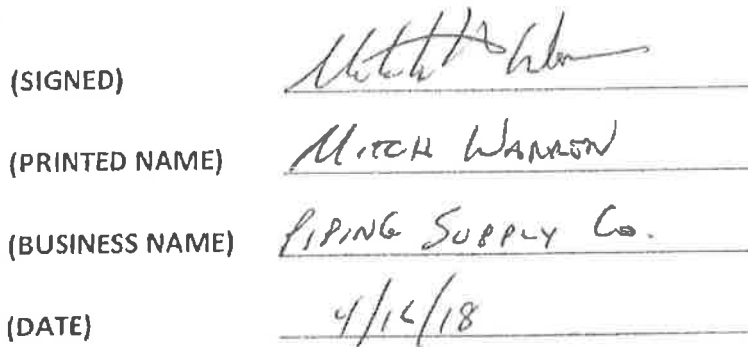 (SIGNED)
(PRINTED NAME) MITCH WARREN
(BUSINESS NAME) PIPING SUPPLY Co.
(DATE) 4/16/18